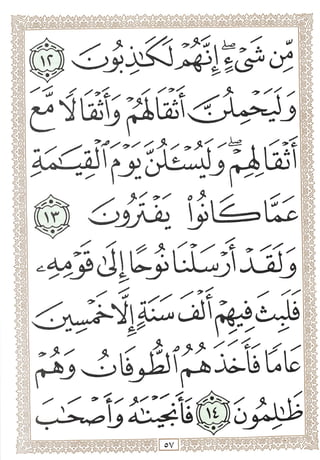 مِّن شَىْءٍ ۖ إِنَّهُمْ لَكَـٰذِبُونَ ١٢
وَلَيَحْمِلُنَّ أَثْقَالَهُمْ وَأَثْقَالًا مَّعَ
أَثْقَالِهِمْ ۖ وَلَيُسْـَٔلُنَّ يَوْمَ ٱلْقِيَـٰمَةِ
عَمَّا كَانُوا۟ يَفْتَرُونَ ١٣
وَلَقَدْ أَرْسَلْنَا نُوحًا إِلَىٰ قَوْمِهِۦ
فَلَبِثَ فِيهِمْ أَلْفَ سَنَةٍ إِلَّا خَمْسِينَ
عَامًا فَأَخَذَهُمُ ٱلطُّوفَانُ وَهُمْ
ظَـٰلِمُونَ ١٤ فَأَنجَيْنَـٰهُ وَأَصْحَـٰبَ
٥٧